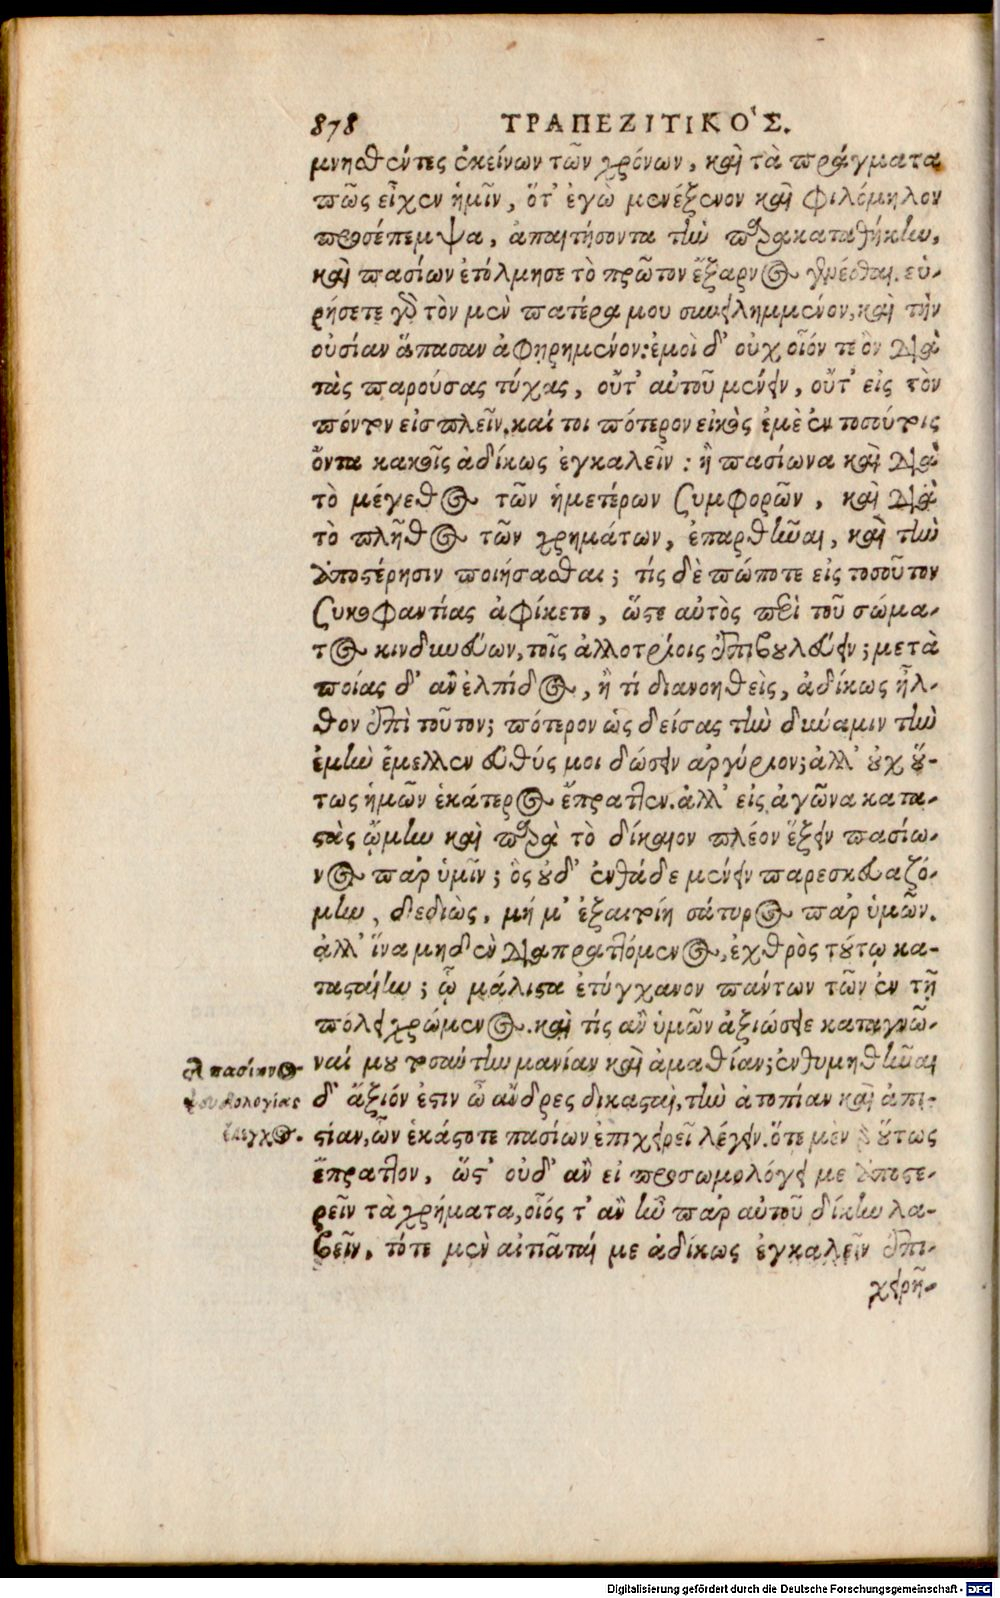 878 ΤΡΑΠΕΖΙΤΙΚΟ'Σ.
μνηϑέντες ἐκείνων τῶν χρόνων, καὶ τὰ πράγματα
πῶς εἶχεν ἡμῖν, ὅτ' ἐγὼ μενέξενον καὶ φιλόμηλον
προσέπεμψα, ἀπαιτήσοντα τὴν παρακαταθήκην,
καὶ πασίων ἐτόλμησε τὸ πρῶτον ἔξαρνος γενέσθαι. εὑ-
ρήσετε γὰρ τὸν μὲν πατέρα μου συνειλημμένον, καὶ τὴν
οὐσίαν ἅπασαν ἀφῃρημένον: ἐμοὶ δ' οὐχ οἷόν τε ὂν διὰ
τὰς παρούσας τύχας, οὔτ' αὐτοῦ μένειν, οὔτ' εἰς τὸν
πόντον εἰσπλεῖν. καί τοι πότερον εἰκὸς ἐμὲ ἐν τοσούτοις
ὄντα κακοῖς ἀδίκως ἐγκαλεῖν: ἢ πασίωνα καὶ διὰ
τὸ μέγεθος τῶν ἡμετέρων συμφορῶν, καὶ διὰ
τὸ πλῆθος τῶν χρημάτων, ἐπαρθῆναι, καὶ τὴν
ἀποστέρησιν ποιήσασθαι; τίς δὲ πώποτε εἰς τοσοῦτον
συκοφαντίας ἀφίκετο, ὥστε αὐτὸς περὶ τοῦ σώμα-
τος κινδυνεύων, τοῖς ἀλλοτρίοις ἐπιβουλεύειν; μετὰ
ποίας δ' ἂν ἐλπίδος, ἢ τί διανοηθεὶς, ἀδίκως ἦλ-
θον ἐπὶ τοῦτον; πότερον ὡς δείσας τὴν δύναμιν τὴν
ἐμὴν ἔμελλεν εὐθύς μοι δώσειν ἀργύριον; ἀλλ' οὐχ οὕ-
τως ἡμῶν ἑκάτερος ἔπραττεν. ἀλλ' εἰς ἀγῶνα κατα-
στὰς ᾤμην καὶ παρὰ τὸ δίκαιον πλέον ἕξειν πασίω-
νος παρ' ὑμῖν; ὃς οὐδ' ἐνθάδε μένειν παρεσκευαζό-
μην, δεδιὼς, μή μ' ἐξαιτοίη σάτυρος παρ' ὑμῶν.
ἀλλ' ἵνα μηδὲν διαπραττόμενος, ἐχθρὸς τούτῳ κα-
τασταίην; ᾧ μάλιστα ἐτύγχανον πάντων τῶν ἐν τῇ
πόλει χρώμενος. καὶ τίς ἂν ὑμῶν ἀξιώσειε καταγνῶ-
ναί μου τοσαύτην μανίαν καὶ ἀμαθίαν; ἐνθυμηθῆναι
δ' ἄξιόν ἐστιν ὦ ἄνδρες δικασταὶ, τὴν ἀτοπίαν καὶ ἀπι-
στίαν, ὧν ἑκάστοτε πασίων ἐπιχειρεῖ λέγειν. ὅτε μὲν οὕτως
ἔπραττον, ὥστ' οὐδ' ἂν εἰ προσωμολόγει με ἀποστε-
ρεῖν τὰ χρήματα, οἷός τ' ἂν ἦν παρ' αὐτοῦ δίκην λα-
βεῖν, τότε μὲν αἰτιᾶταί με ἀδίκως ἐγκαλεῖν ἐπι-
χειρῆ-
πασίωνος
ψευδολογίας
ἔλεγχος.
Digitalisierung gefördert durch die Deutsche Forschungsgemeinschaft - DFG